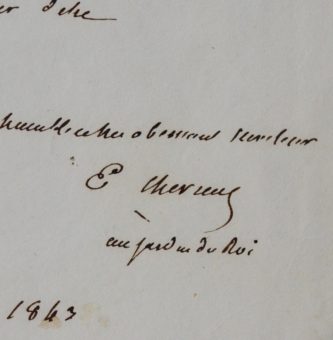 d'être
humble et très obeissant serviteur
E Chevreul
au jardin du Roi
1843